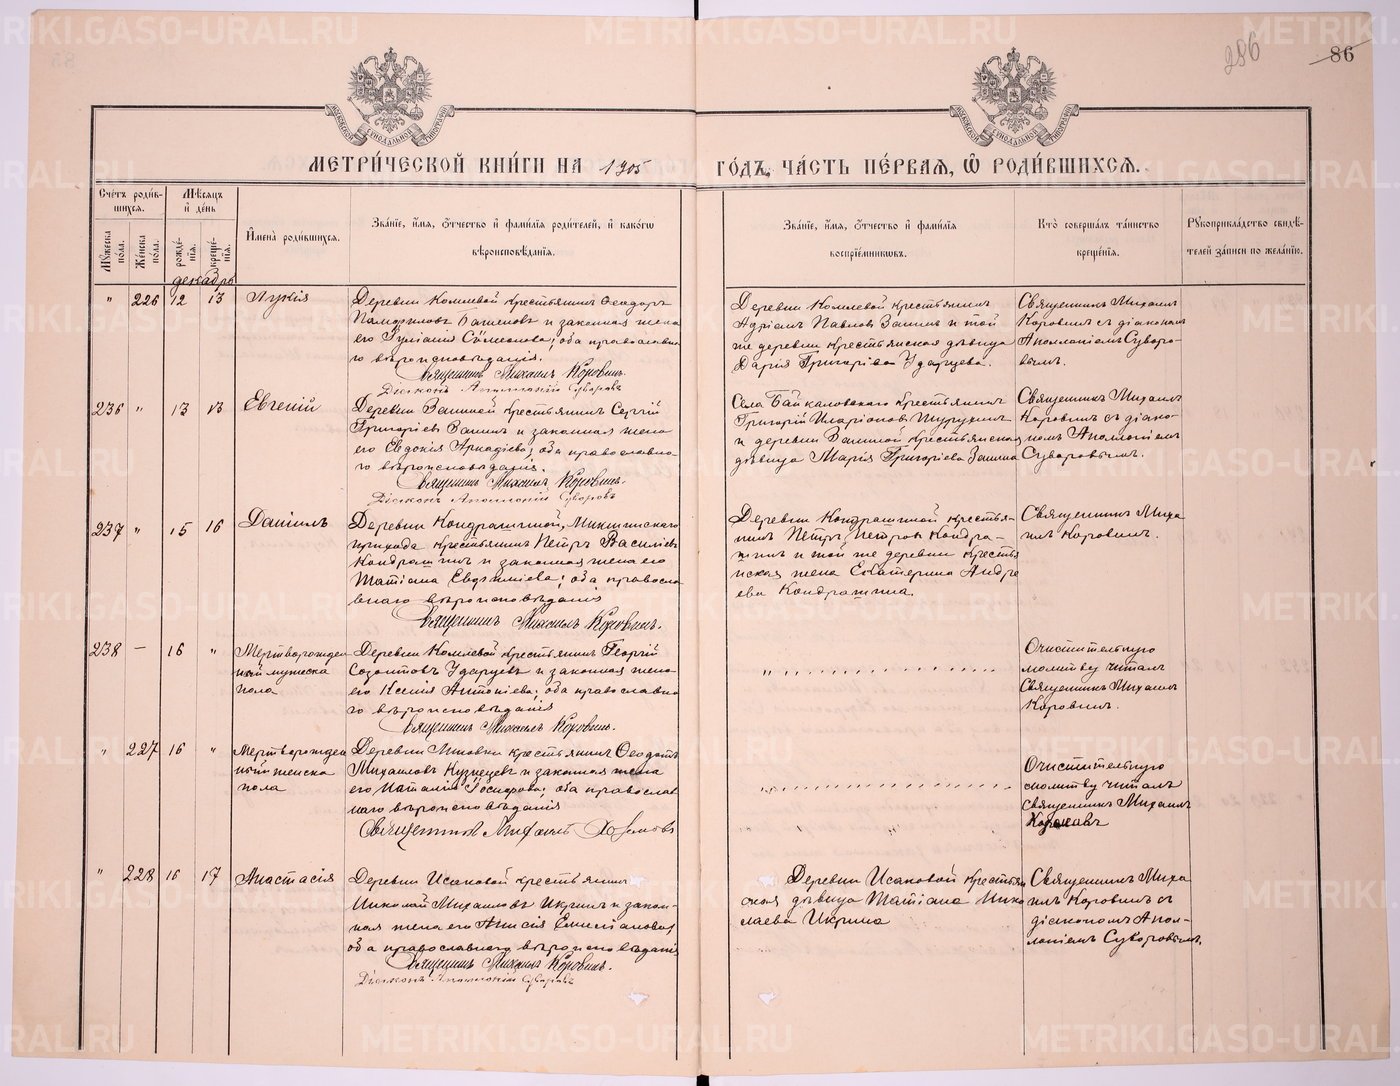 286
86
МЕТРИ́ЧЕСКОЙ КНИ́ГИ НА 1905
ГО́ДЪ, ЧА́СТЬ ПЕ́РВАЯ, Ѡ҆ РОДИ́ВШИХСЯ.
Сче́тъ роди́в-
шихся.
Мѣ́сяцъ
и҆ де́нь
Му́жеска по́ла.
Же́нска по́ла.
рожде́-
нїя.
креще́-
нїя.
И҆мена̀ роди́вшихся.
Зва́нїе, и҆́мя, ѻ҆́тчество и҆ фами́лїя роди́телей, и҆ како́гѡ
вѣроисповѣ́данїя.
Зва́нїе, и҆́мя, ѻ҆́тчество и҆ фами́лїя
воспрїе́мниковъ.
Кто̀ соверша́лъ та́инство
креще́нїя.
Рукоприкла́дство свидѣ́-
телей за́писи по жела́нїю.
декабрь
" 226 12 13 Лукія
Деревни Комлевой крестьянинъ Ѳеодоръ
Памфиловъ и законная жена
его Іуліанія Симеонова; оба православна-
го вѣроисповѣданія.
Священникъ Михаилъ Коровинъ.
Діаконъ Аполлоній Суворовъ
Деревни Комлевой крестьянинъ
Адріанъ Павловъ Зашинъ и той
же деревни крестьянская дѣвица
Дарія Григоріева Ударцева.
Священникъ Михаилъ
Коровинъ съ діакономъ
Аполлоніемъ Суворо-
вымъ.
236 " 13 13 Евгеній
Деревни крестьянинъ Сергій
Григоріевъ Зашинъ и законная жена
его Евдокія Аркадіева; оба православна-
го вѣроисповѣданія.
Священникъ Михаилъ Коровинъ.
Діаконъ Аполлоній Суворовъ
Села Байкаловскаго крестьянинъ
Григорій Иларіоновъ
и деревни крестьянская
дѣвица Марія Григоріева Зашина
Священникъ Михаилъ
Коровинъ съ діако-
номъ Аполлоніемъ
Суворовымъ.
237 " 15 16 Даніилъ
Деревни Кондрашиной,
прихода крестьянинъ Петръ Василіевъ
Кондрашинъ и законная жена его
Татіана Евфиміева; оба правосла-
внаго вѣроисповѣданія
Священникъ Михаилъ Коровинъ.
Деревни Кондрашиной крестья-
нинъ Петръ Кондра-
шинъ и той же деревни крестья
нская жена Екатерина Андре
ева Кондрашина.
Священникъ Миха
илъ Коровинъ.
238 — 16 " Мертворожден
ный мужеска
пола
Деревни Комлевой крестьянинъ Георгій
Созонтовъ Ударцевъ и законная жена
его Ксенія Антоніева; оба православна
го вѣроисповѣданія
Священникъ Михаилъ Коровинъ.
Очистительную
молитву читалъ
Священникъ Михаилъ
Коровинъ.
" 227 16 " Мертворожден
ный женска
пола
Деревни Липовки крестьянинъ Ѳеодотъ
Михаиловъ Кузнецовъ и законная жена
его, Наталія Іосифова; оба православ
наго вѣроисповѣданія
Священникъ Михаилъ Коровинъ
Очистительную
молитву читалъ
священникъ Михаилъ
Коровинъ
" 228 16 17 Анастасія
Деревни Исаковой крестьянинъ
Николай Михаиловъ Икринъ и закон-
ная жена его Анисія Емиліанова,
оба православнаго вѣроисповѣданія
Священникъ Михаилъ Коровинъ.
Діаконъ Аполлоній Суворовъ
Деревни Исаковой крестьян
ская дѣвица Татіана Нико
лаева Икрина
Священникъ Миха
илъ Коровинъ съ
діакономъ Апол-
лоніемъ Суворовымъ.